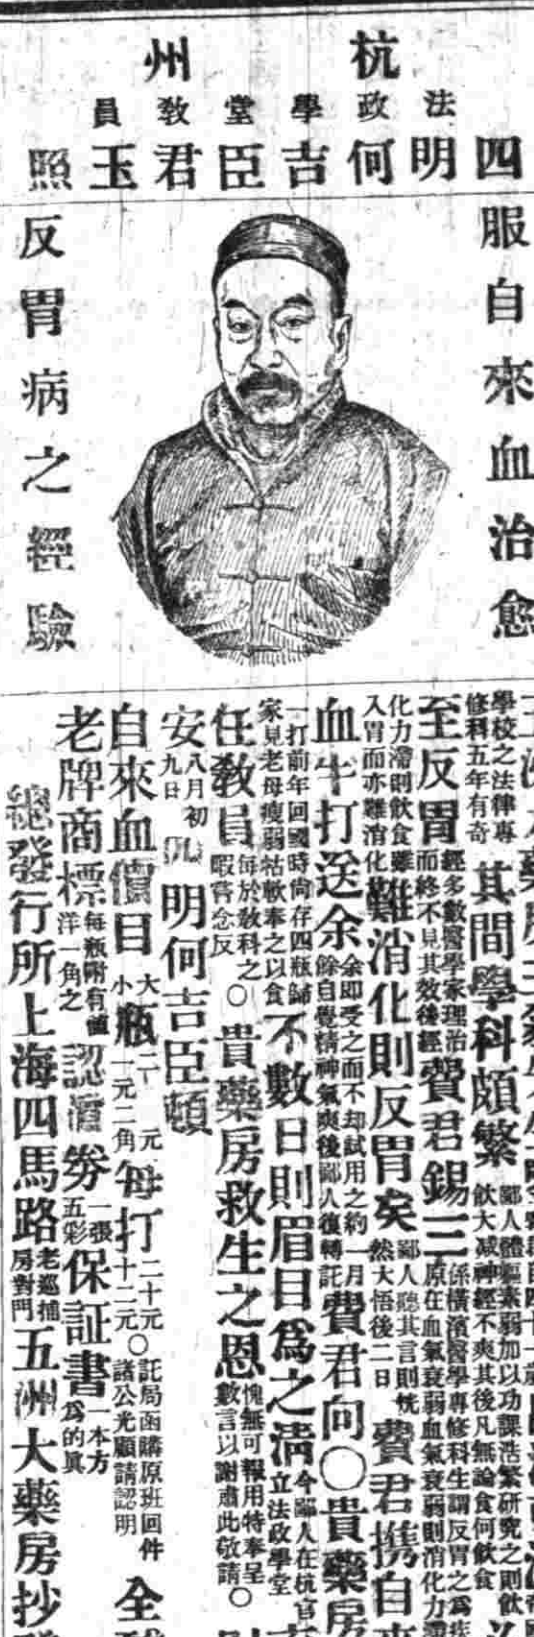 杭州
法政學堂教員
四明何吉臣君玉照
服自來血治愈
反胃病之經驗
學校之法律專
修科五年有奇
其間學科頗繁
鄙人體軀素弱加以功課浩繁研究之則飲
飲大减神經不爽其後凡無論食何飲食
至反胃
經多數醫學家理治
而終不見其效後經
費君錫三
係橫濱醫學專修科生謂反胃之爲疾
原在血氣衰弱血氣衰弱則消化力滯
化力滯則飲食難
入胃而亦難消化
難消化則反胃矣
鄙人聽其言則恍
然大悟後二日
費君携自來
血半打送余
余即受之而不却試用之約一月
餘自覺精神氣爽後鄙人復轉託
費君向〇貴藥房
一打前年回國時尙存四瓶歸
家見老母瘦弱祜欷奉之以食
不數日則眉目爲之淸
今鄙人在杭官
立法政學堂
任敎員
每於敎科之
暇嘗念反
〇貴藥房救生之恩
愧無可報用特奉呈
數言以謝肅此敬請〇
安
八月初
九日
四明何吉臣頓
自來血價目
大
小
瓶
二元
一元二角
每打
二十元
十二元
〇
託局函購原班回件
諸公光顧請認明
全
老牌商標
每瓶附有値
洋一角之
認酒券
一張
五彩
保証書
一本方
爲的眞
總發行所上海四馬路
老巡捕
房對門
五洲大藥房抄